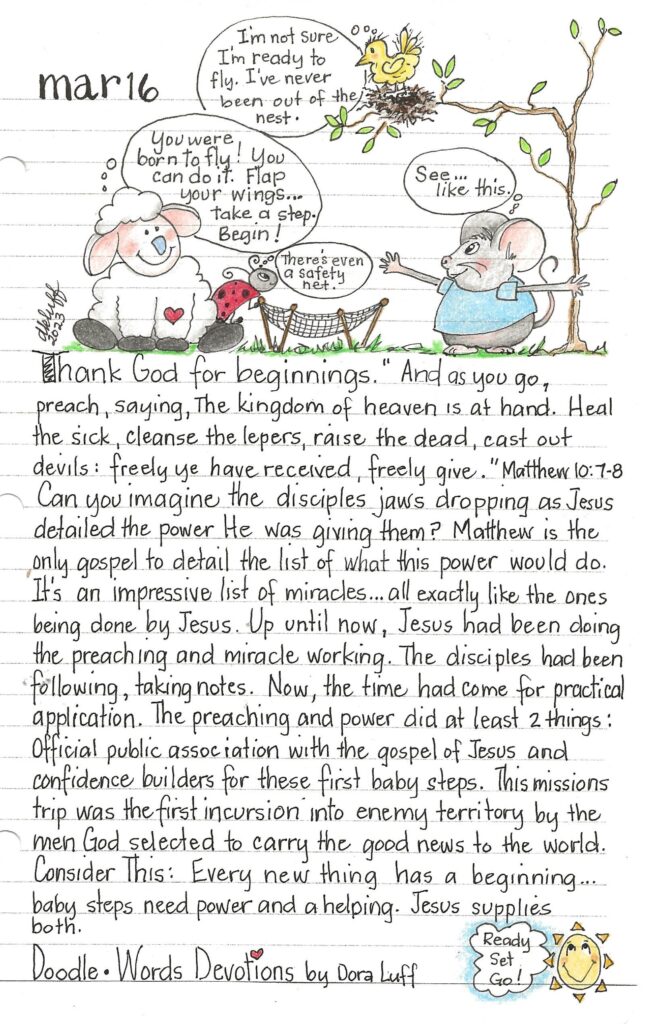 mar16
I'm not sure
I'm ready to
fly. I've never
been out of the
nest.
You were
born to fly! You
can do it. Flap
your wings...
take a step.
Begin!
There's even
a safety
net.
See...
like this.
dkluff
2023
Thank God for beginnings." And as you go,
preach, saying, The kingdom of heaven is at hand. Heal
the sick, cleanse the lepers, raise the dead, cast out
devils: freely ye have received, freely give." Matthew 10:7-8
Can you imagine the disciples jaws dropping as Jesus
detailed the power He was giving them? Matthew is the
only gospel to detail the list of what this power would do.
It's an impressive list of miracles... all exactly like the ones
being done by Jesus. Up until now, Jesus had been doing
the preaching and miracle working. The disciples had been
following, taking notes. Now, the time had come for practical
application. The preaching and power did at least 2 things:
Official public association with the gospel of Jesus and
confidence builders for these first baby steps. This missions
trip was the first incursion into enemy territory by the
men God selected to carry the good news to the world.
Consider This: Every new thing has a beginning...
baby steps need power and a helping. Jesus supplies
both.
Ready
Set
Go!
Doodle • Words Devotions by Dora Luff